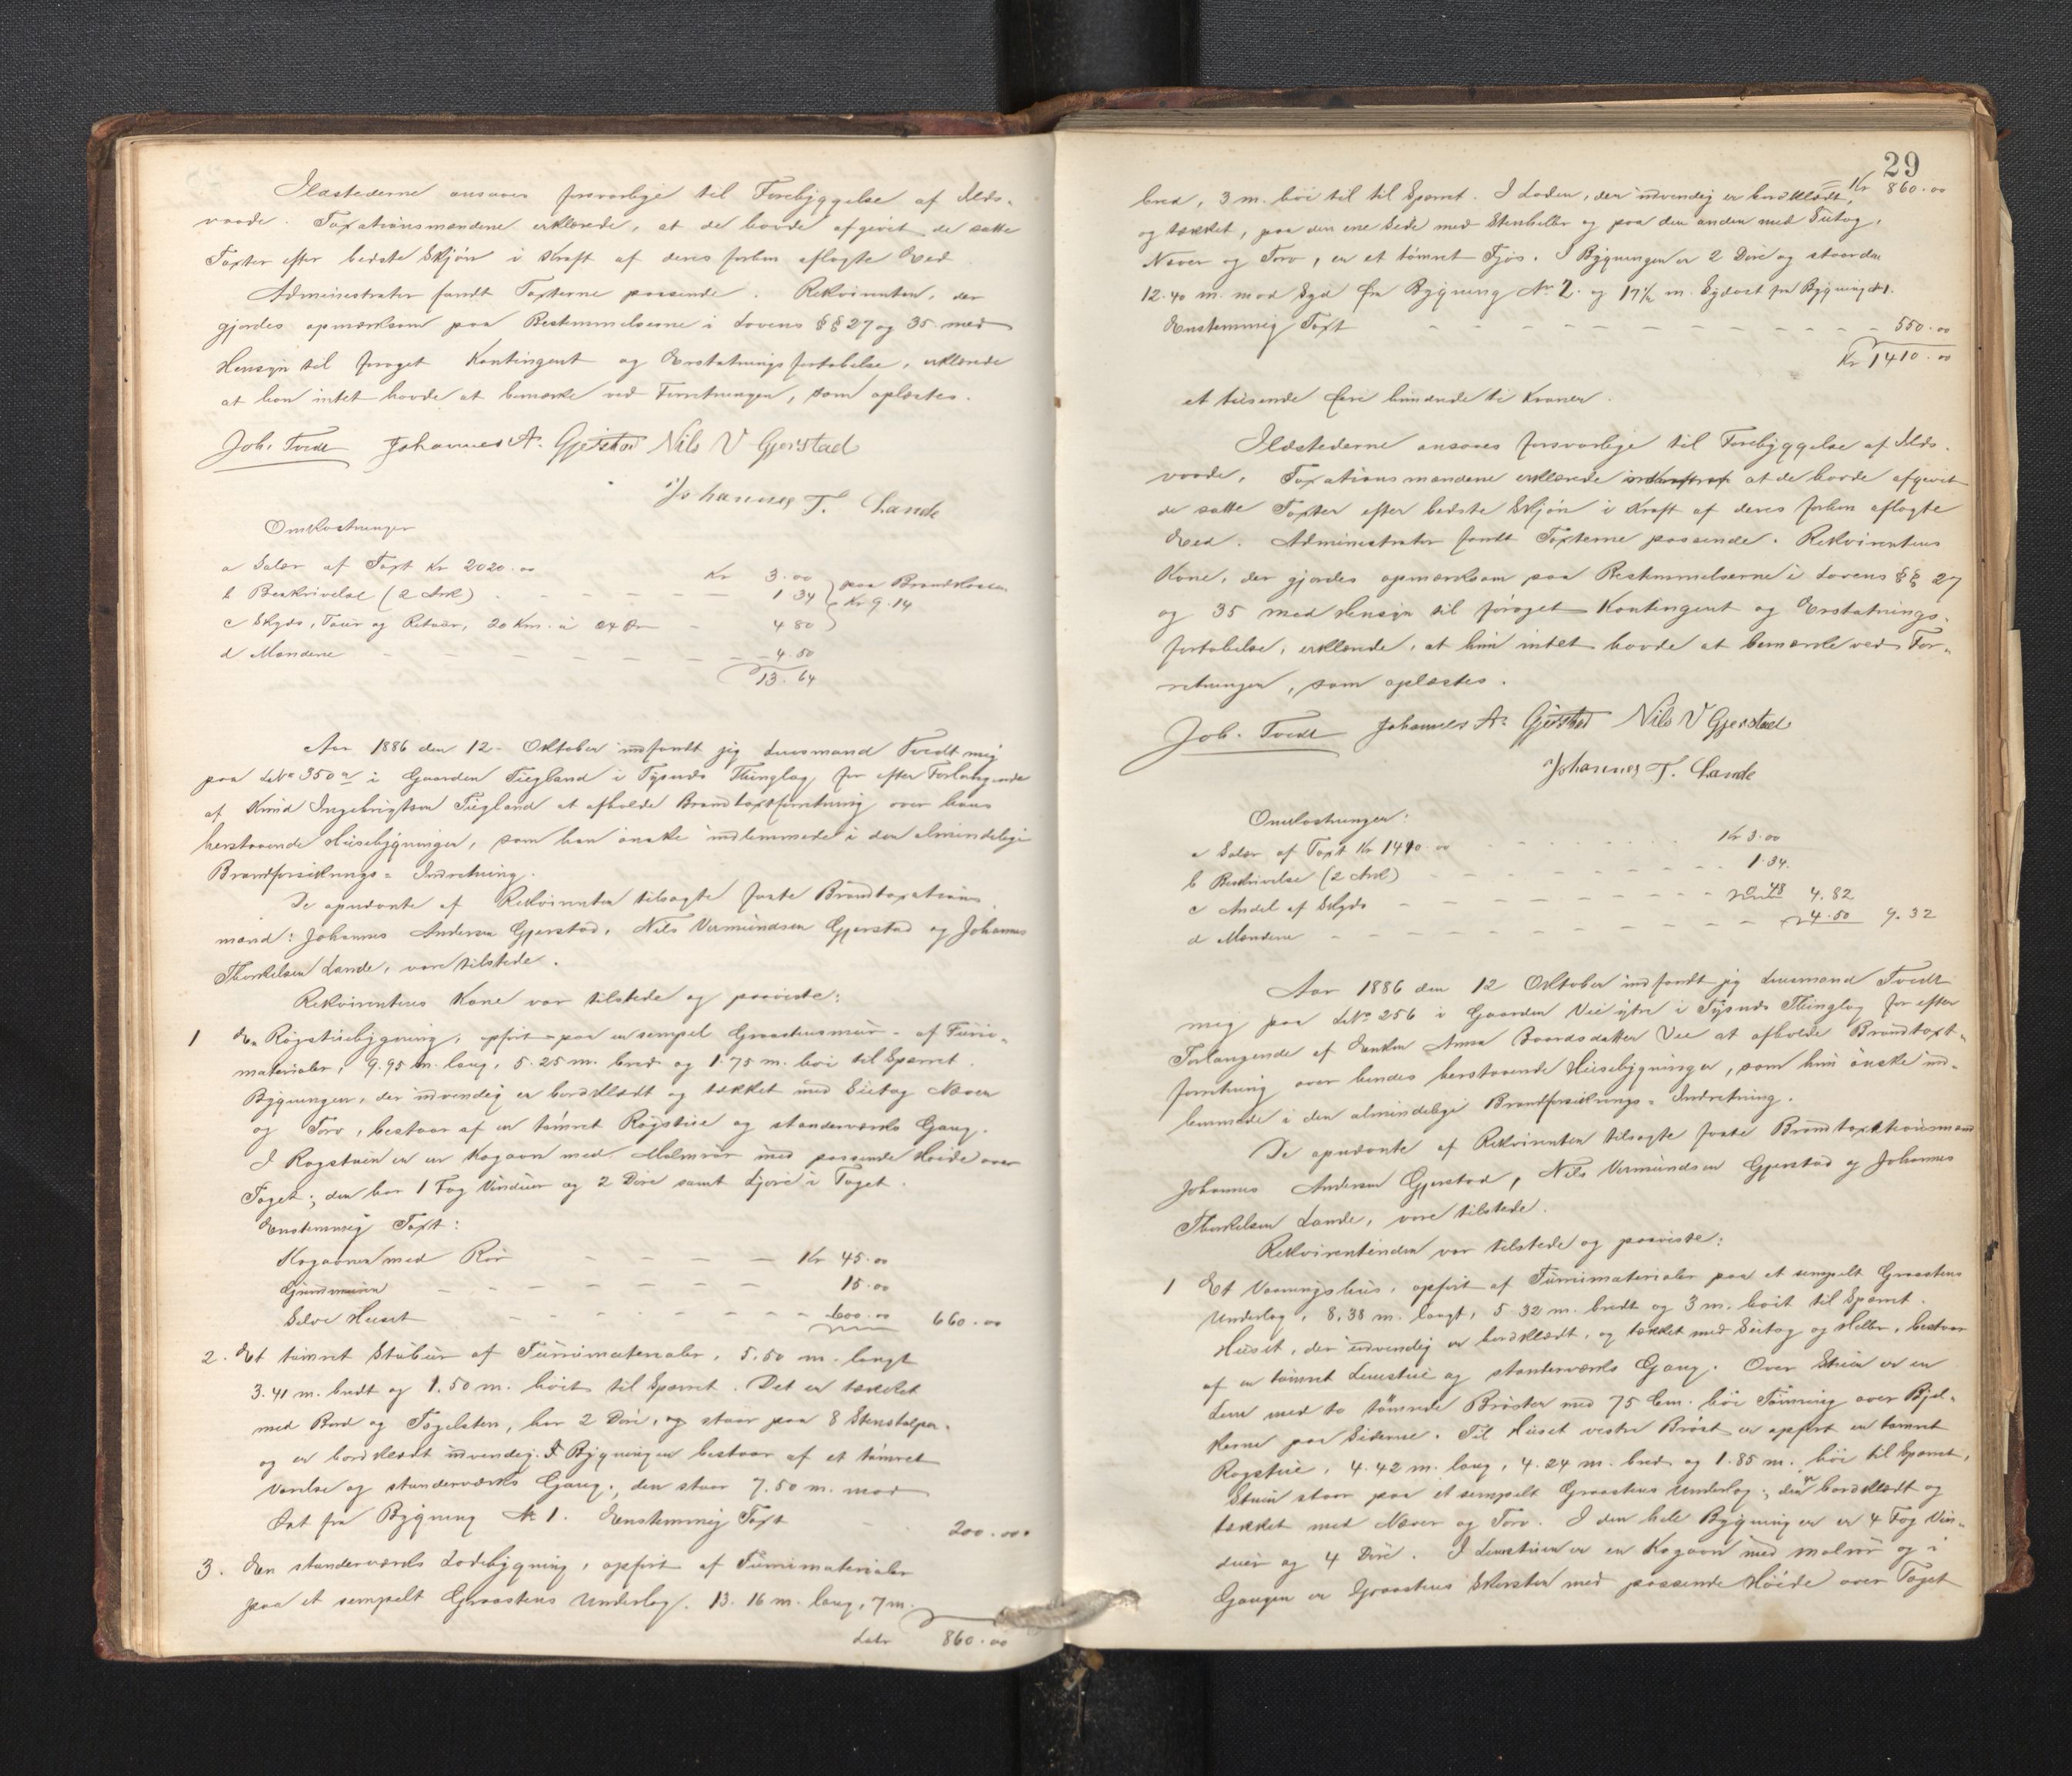 Ildstederne ansaaes forsvarlige til Forebyggelse af Ilds-
vaade. Taxationsmændene erklærede, at de havde afgivet de satte
Taxter efter bedste Skjøn i Kraft af deres forhen aflagte Eed
Administrator fandt Taxterne passende. Rekvirenten, der
gjordes opmærksom paa Bestemmelserne i Lovens §§ 27 og 35 med
Hensyn til forøget Kontingent og Erstatningsfortabelse, erklærede
at han intet havde at bemærke ved Forretningen, som oplæstes.
Joh. Tvedt Johannes A. Gjerstad Nils V Gjerstad
Johannes T. Lande
Omkostninger
a Salær af Taxt Kr 2020.00 Kr 3.00
b Beskrivelse (2 Ark) 1.34 paa Brandkassen
c Skyds, Tour og Retour, 20 Km. a 24 Øre 4 80 Kr 9.14
d Mændene 4.50
13.64
Aar 1886 den 12. Oktober indfandt jeg Lensmand Tvedt mig
paa LNo 350 a i Gaarden Tiegland i Tysnes Thinglag for efter Forlangende
af Knud Ingebrigtsen Tiegland at afholde Brandtaxtforretning over hans
herstaaende Husebygninger, som han ønske indlemmede i den almindelige
Brandforsikrings-Indretning.
De opnævnte af Rekvirenten tilsagte faste Brandtaxations
mænd: Johannes Andersen Gjerstad, Nils Vermundsen Gjerstad og Johannes
Thorkelsen Lande, vare tilstede.
Rekvirentens Kone var tilstede og paaviste:
1 En Røgstuebygning, opført paa en simpel Graastensmur af Furu-
materialer, 9.95 m. lang, 5.25 m. bred og 1.75 m. høi til Sparret.
Bygningen, der udvendig er bordklædt og tækket med Sutag Næver
og Torv, bestaar af en tømret Røgstue og standerværks Gang.
I Rogstuen er en Kogovn med Malmrør med passende Høide over
Taget; den har 1 Fag Vinduer og 2 Døre samt Ljore i Taget.
Enstemmig Taxt:
Kogovnen med Rør Kr 45.00
Grundmuren 15.00
Selve Huset 600.00 660.00
2. Et tømret Stabur af Furumaterialer, 5.50 m. langt
3.41 m. bredt og 1.50 m. høit til Sparret. Det er tækket
med Bord og Tagelsten, har 2 Døre, og staar paa 8 Stenstolper.
og er bordklædt udvendig. Bygningen bestaar af et tømret
Værelse og standerværks Gang; den staar 7.50 m. mod
Øst fra Bygning No 1. Enstemmig Taxt 200.00.
3. En standerværks Ladebygning, opført af Furumaterialer
paa et simpelt Graastens Underlag. 13.16 m. lang, 7 m.
Latr 860.00
29
= Kr 860.00
bred, 3 m. høi til til Sparret. I Laden, der udvendig er bordklædt,
og tækket, paa den ene Side med Stenheller og paa den anden med Sutag,
Næver og Torv, er et tømret Fjøs. I Bygningen er 2 Døre og staar den
12.40 m. mod Syd fra Bygning No 2. og 17½ m. Sydost fra Bygning No 1.
Enstemmig Taxt 550.00
Kr 1410.00
et tusende fire hundrede ti Kroner.
Ildstederne ansaaes forsvarlige til Forebyggelse af Ilds-
vaade. Taxationsmændene erklærede at de havde afgivet
de satte Taxter efter bedste Skjøn i Kraft af deres forhen aflagte
Eed. Administrator fandt Taxterne passende. Rekvirentens
Kone, der gjordes opmærksom paa Bestemmelserne i Lovens §§ 27
og 35 med Hensyn til forøget Kontingent og Erstatnings-
fortabelse, erklærede, at hun intet havde at bemærke ved For-
retningen, som oplæstes.
Joh. Tvedt Johannes A. Gjerstad Nils V Gjerstad
Johannes T. Lande
Omkostninger:
a Salær af Taxt Kr 1410.00 Kr 3.00
b Beskrivelse (2 Ark) 1.34.
c Andel af Skyds 0.48 4.82
d Mændene 4.50 9.32
Aar 1886 den 12 Oktober indfandt jeg Lensmand Tvedt
mig paa LNo 256 i Gaarden Vie ytre i Tysnes Thinglag for efter
Forlangende af Enken Anna Baardsdatter Vie at afholde Brandtaxt-
forretning over hendes herstaaende Husebygninger, som hun ønske ind-
lemmede i den almindelige Brandforsikrings-Indretning.
De opnævnte af Rekvirenten tilsagte faste Brandtaxationsmænd
Johannes Andersen Gjerstad, Nils Vermundsen Gjerstad og Johannes
Thorkelsen Lande, vare tilstede.
Rekvirentinden var tilstede og paaviste:
1 Et Vaaningshus, opført af Furumaterialer paa et simpelt Graastens
Underlag, 8.38 m. langt, 5 32 m. bredt og 3 m. høit til Sparret.
Huset, der udvendig er bordklædt, og tækket med Sutag og Heller, bestaar
af en tømret Lemstue og standerværks Gang. Over Stuen er en
Lem med to tømrede Brøster med 75 Cm. høi Tømring over Bjel-
kerne paa Siderne. Til Huset vestre Brøst er opført en tømret
Røgstue, 4.42 m. lang, 4.24 m. bred og 1.85 m. høi til Sparret,
Stuen staar paa et simpelt Graastens Underlag; den er bordklædt og
tækket med Næver og Torv. I den hele Bygning er er 4 Fag Vin-
duer og 4 Døre. I Lemstuen er en Kogovn med malmrør og i
Gangen er Graastens Skorsten med passende Høide over Taget